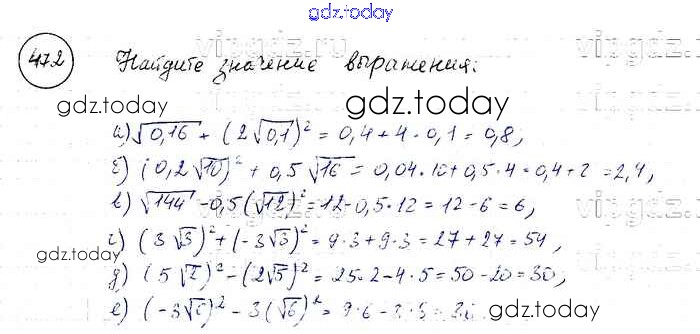 gdz.today
472 Найдите значение выражения:
gdz.today gdz.today
а) √0,16 + (2√0,1)² = 0,4 + 4 · 0,1 = 0,8,
б) (0,2√10)² + 0,5√16 = 0,04 · 10 + 0,5 · 4 = 0,4 + 2 = 2,4,
в) √144 - 0,5(√12)² = 12 - 0,5 · 12 = 12 - 6 = 6,
г) (3√3)² + (-3√3)² = 9 · 3 + 9 · 3 = 27 + 27 = 54,
gdz.today gdz.today
д) (5√2)² - (2√5)² = 25 · 2 - 4 · 5 = 50 - 20 = 30,
е) (-3√6)² - 3(√6)² = 9 · 6 -
gdz.today